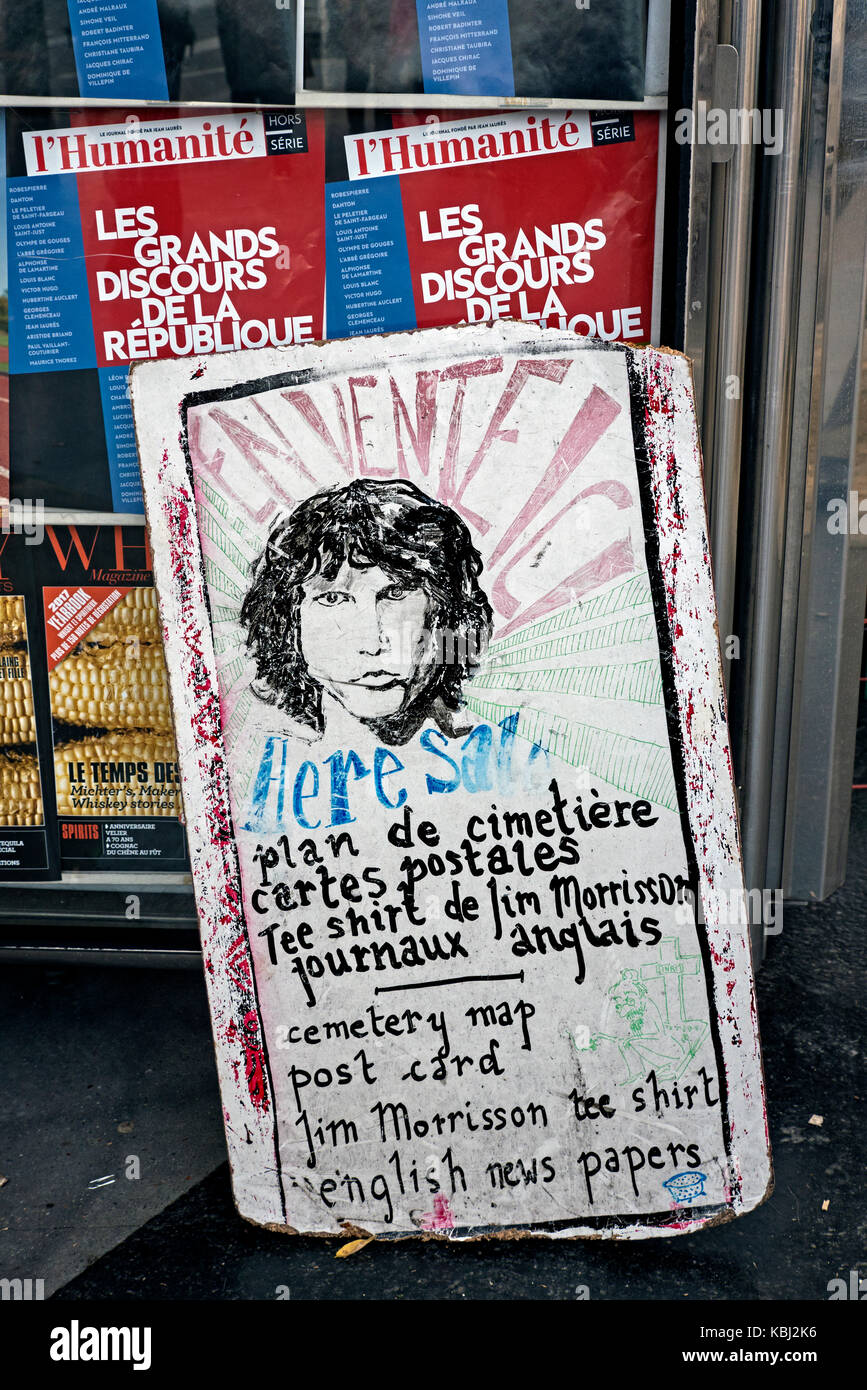 ANDRÉ MALRAUX
SIMONE VEIL
ROBERT BADINTER
FRANÇOIS MITTERRAND
CHRISTIANE TAUBIRA
JACQUES CHIRAC
DOMINIQUE DE
VILLEPIN
SIMONE VEIL
ROBERT BADINTER
FRANÇOIS MITTERRAND
CHRISTIANE TAUBIRA
JACQUES CHIRAC
DOMINIQUE
DE VILLEPIN
LE JOURNAL FONDÉ PAR JEAN JAURÈS
l'Humanité
HORS
SÉRIE
ROBESPIERRE
DANTON
LE PELETIER
DE SAINT-FARGEAU
LOUIS ANTOINE
SAINT-JUST
OLYMPE DE GOUGES
L'ABBÉ GRÉGOIRE
ALPHONSE
DE LAMARTINE
LOUIS BLANC
VICTOR HUGO
HUBERTINE AUCLERT
GEORGES
CLEMENCEAU
JEAN JAURÈS
ARISTIDE BRIAND
PAUL VAILLANT-
COUTURIER
MAURICE THOREZ
LES
GRANDS
DISCOURS
DE LA
RÉPUBLIQUE
LE JOURNAL FONDÉ PAR JEAN JAURÈS
l'Humanité
SÉRIE
ROBESPIERRE
DANTON
LE PELETIER
DE SAINT-FARGEAU
LOUIS ANTOINE
SAINT-JUST
OLYMPE DE GOUGES
L'ABBÉ GRÉGOIRE
ALPHONSE
DE LAMARTINE
LOUIS BLANC
VICTOR HUGO
HUBERTINE AUCLERT
GEORGES
CLEMENCEAU
JEAN JAURÈS
LES
GRANDS
DISCOURS
DE LA
IQUE
EN VENTE ICI
Here sal
plan de cimetière
cartes postales
Tee shirt de Jim Morrisson
journaux anglais
cemetery map
post card
Jim Morrisson tee shirt
english news papers
WH
Magazine
2017
YEARBOOK
WHISKY ET SPIRITUEUX
PLUS DE 150 NOTES DE DÉGUSTATION
LE TEMPS DES
Michter's, Maker
Whiskey stories
SPIRITS
ANNIVERSAIRE
VELIER
A 70 ANS
COGNAC
DU CHÊNE AU FÛT
alamy
a
alamy
Image ID: KBJ2K6
www.alamy.com